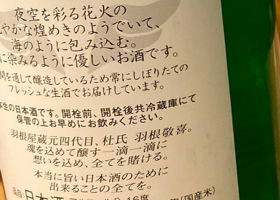 夜空を彩る花火の
やかな煌めきのようでいて、
海のように包み込む。
に染みるように優しいお酒です。
間を通して醸造しているため常にしぼりたての
フレッシュな生酒でお届けしています。
生の日本酒です。開栓前、開栓後共冷蔵庫にて
保管の上お早めにお飲みください。
羽根屋蔵元四代目、杜氏 羽根敬喜。
魂を込めて醸す一滴一滴に
想いを込め、全てを賭ける。
本当に旨い日本酒のために
出来ることの全てを。
日本酒
16度
(国産米)